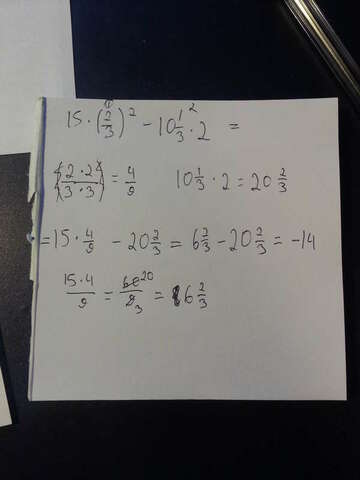 15 · (2/3)² - 10 1/3 · 2 =
(2·2 / 3·3) = 4/9    10 1/3 · 2 = 20 2/3
= 15 · 4/9 - 20 2/3 = 6 2/3 - 20 2/3 = -14
15·4 / 9 = 60 20 / 9 3 = 6 2/3